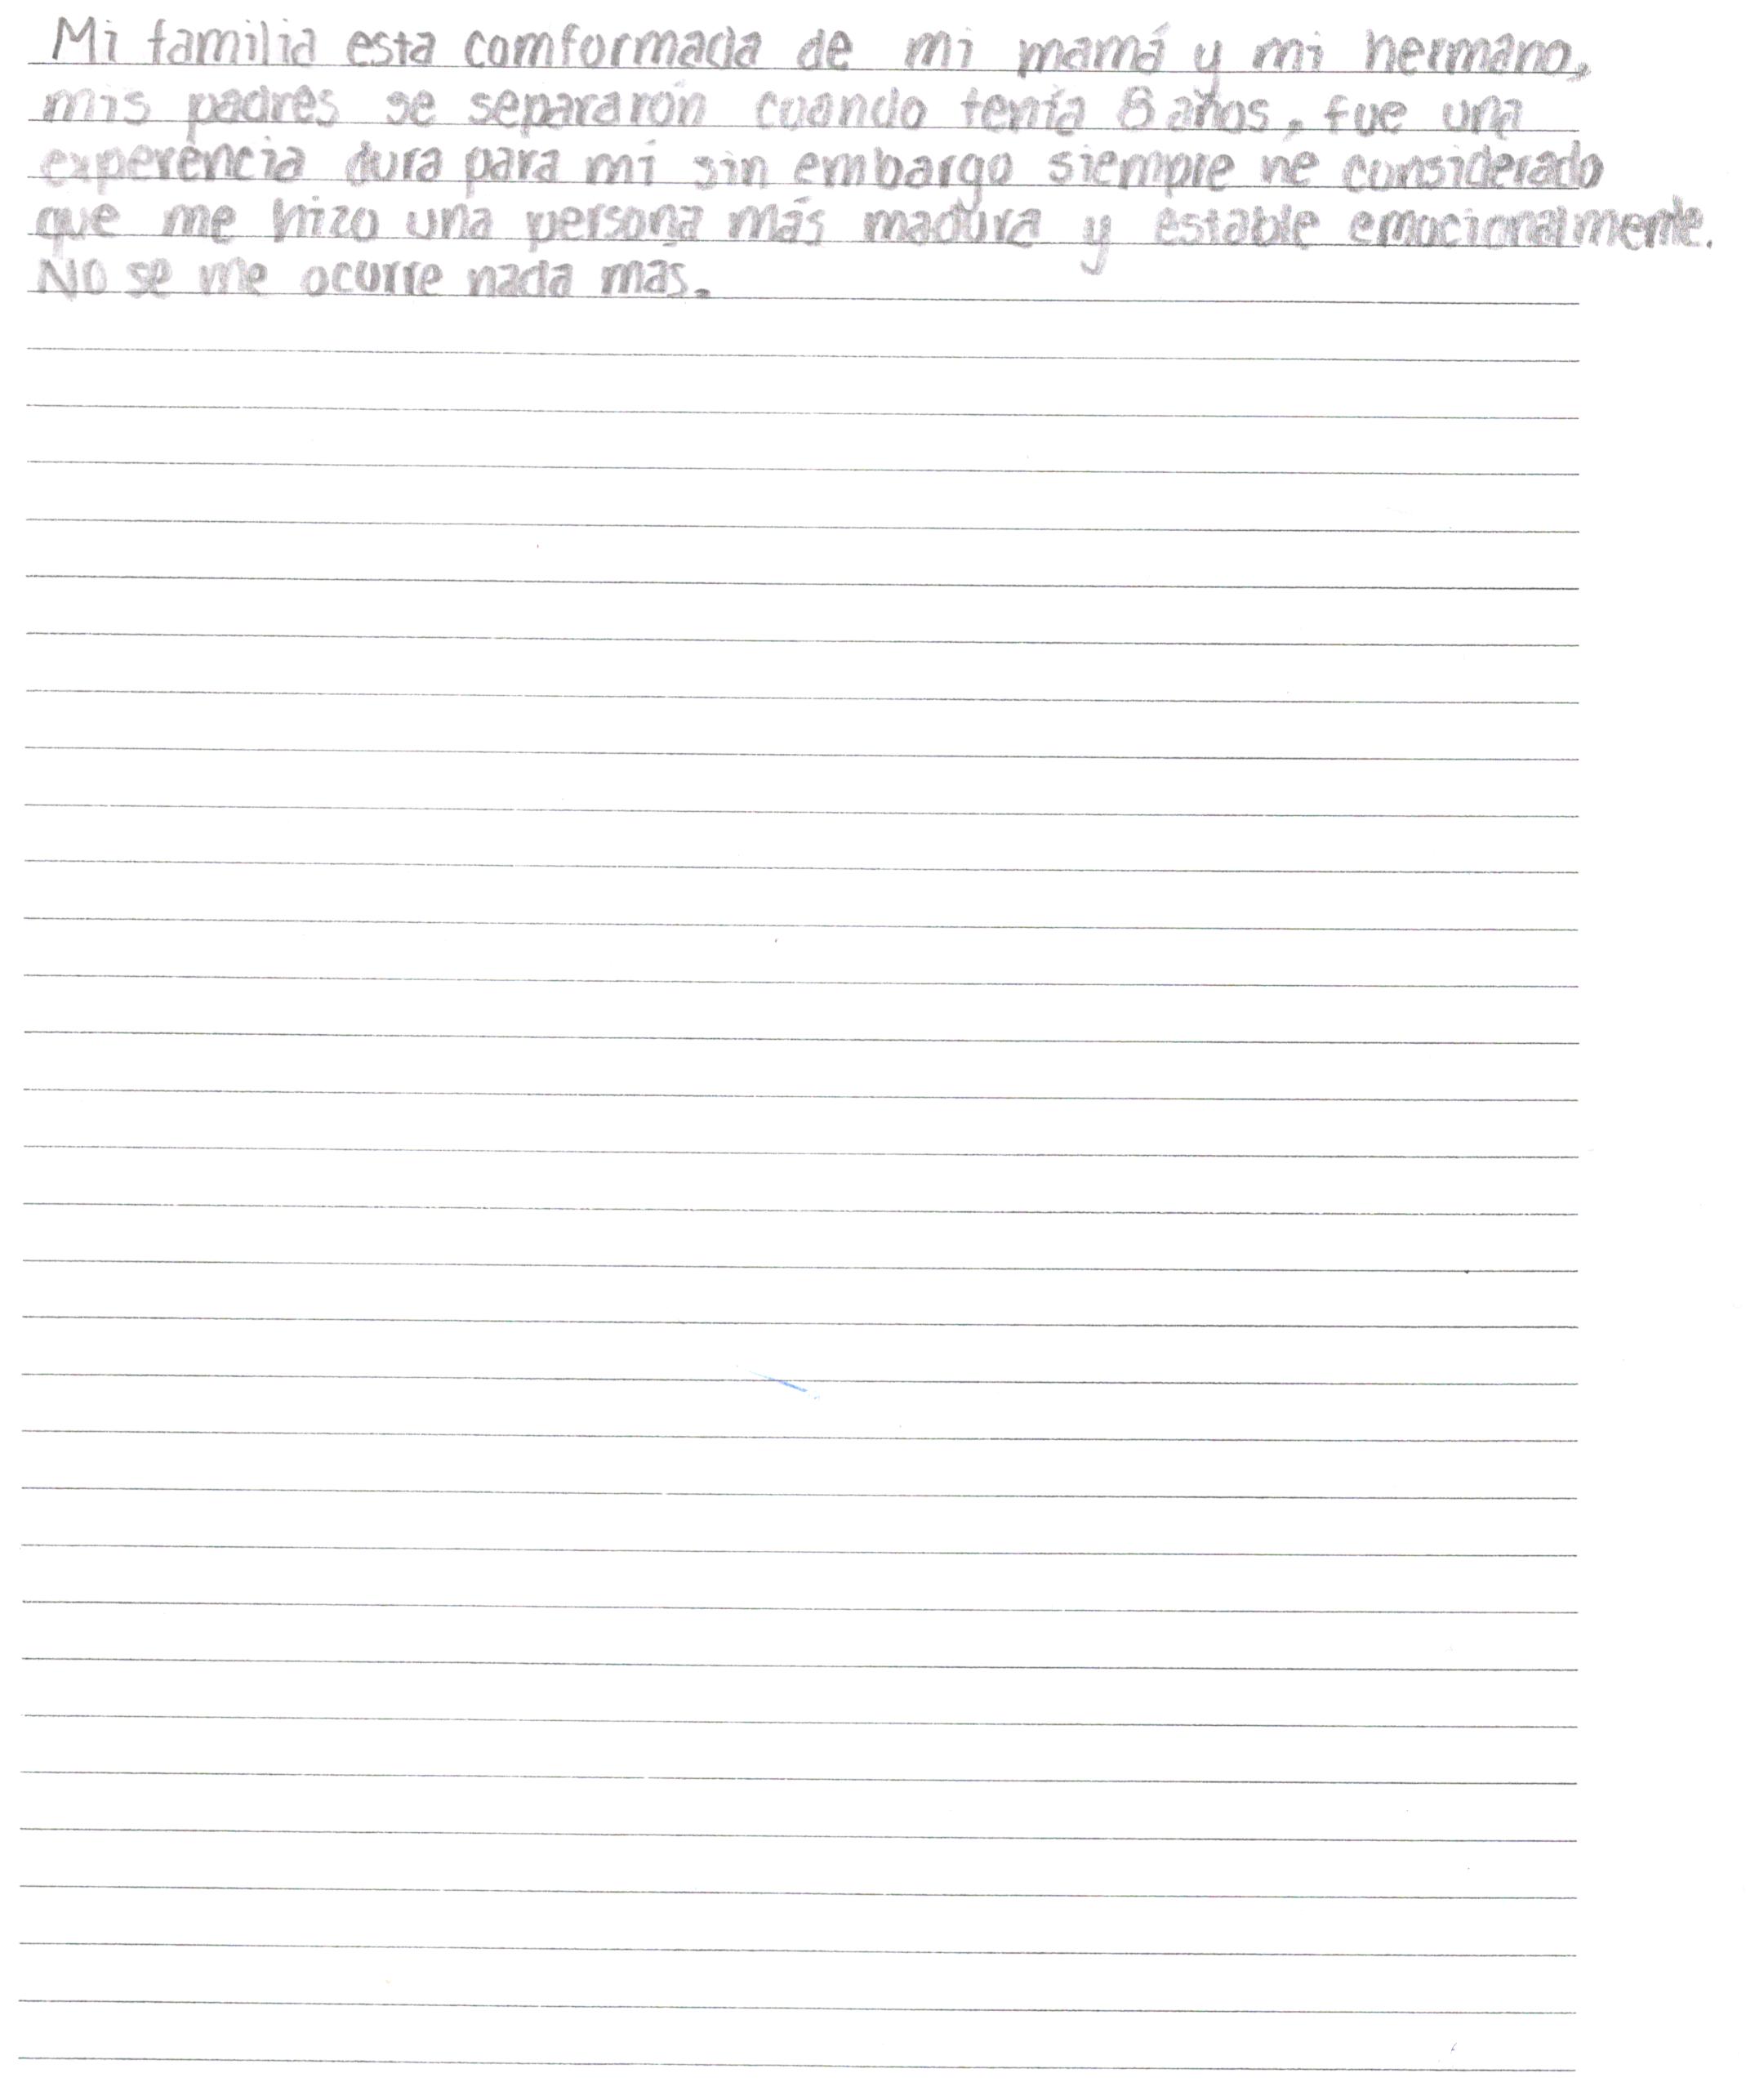 Mi familia esta comformada de mi mamá y mi hermano,
mis padres se separarón cuando tenía 8 años, fue una
experencia dura para mí sin embargo siempre he considerado
que me hizo una persona más madura y estable emocionalmente.
No se me ocurre nada mas.